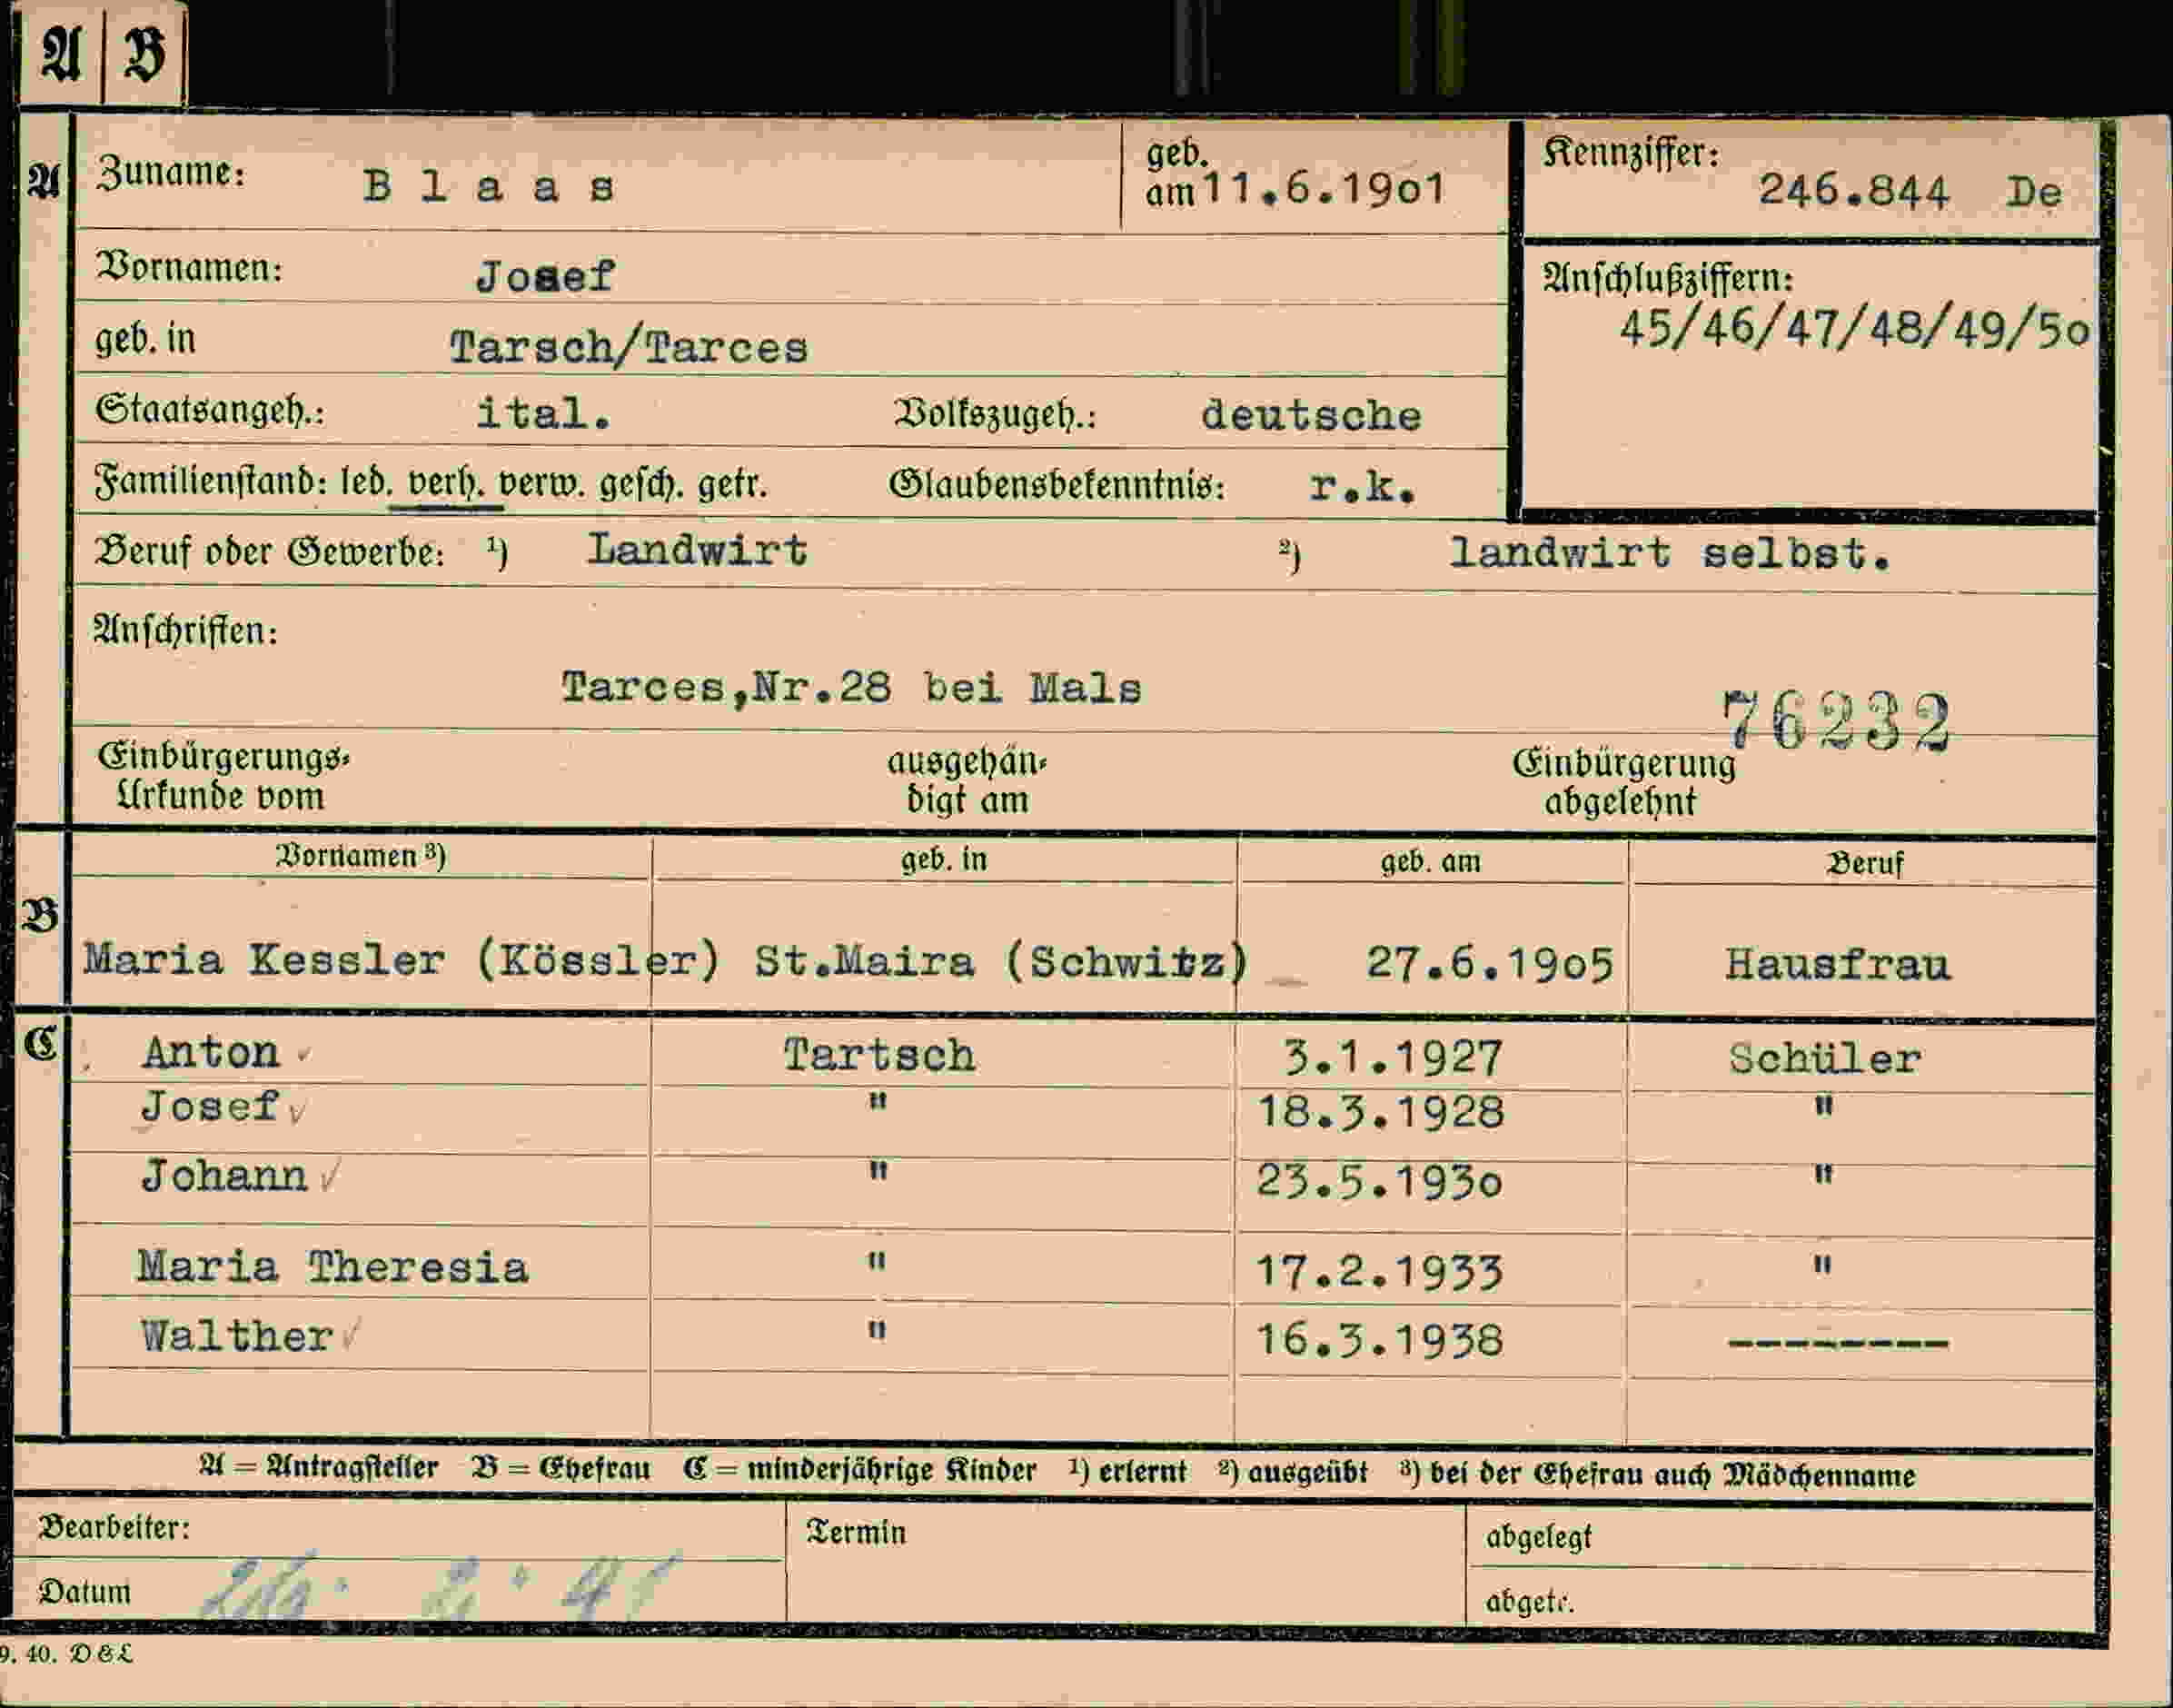 A B
A Zuname: Blaas geb. am 11.6.19o1 Kennziffer: 246.844 De
Vornamen: Josef
Anschlußziffern:
45/46/47/48/49/5o
geb. in Tarsch/Tarces
Staatsangeh.: ital. Volkszugeh.: deutsche
Familienstand: led. verh. verw. gesch. getr. Glaubensbekenntnis: r.k.
Beruf oder Gewerbe: ¹) Landwirt ²) landwirt selbst.
Anschriften:
Tarces,Nr.28 bei Mals
76232
Einbürgerungs- ausgehän- Einbürgerung
Urkunde vom digt am abgelehnt
Vornamen ³) geb. in geb. am Beruf
B Maria Kessler (Kössler) St.Maira (Schwitz) 27.6.19o5 Hausfrau
C Anton ✓ Tartsch 3.1.1927 Schüler
Josef ✓ " 18.3.1928 "
Johann ✓ " 23.5.193o "
Maria Theresia " 17.2.1933 "
Walther ✓ " 16.3.1938 --------
A = Antragsteller B = Ehefrau C = minderjährige Kinder ¹) erlernt ²) ausgeübt ³) bei der Ehefrau auch Mädchenname
Bearbeiter: Termin abgelegt
Datum abgetr.
9. 40. D & L